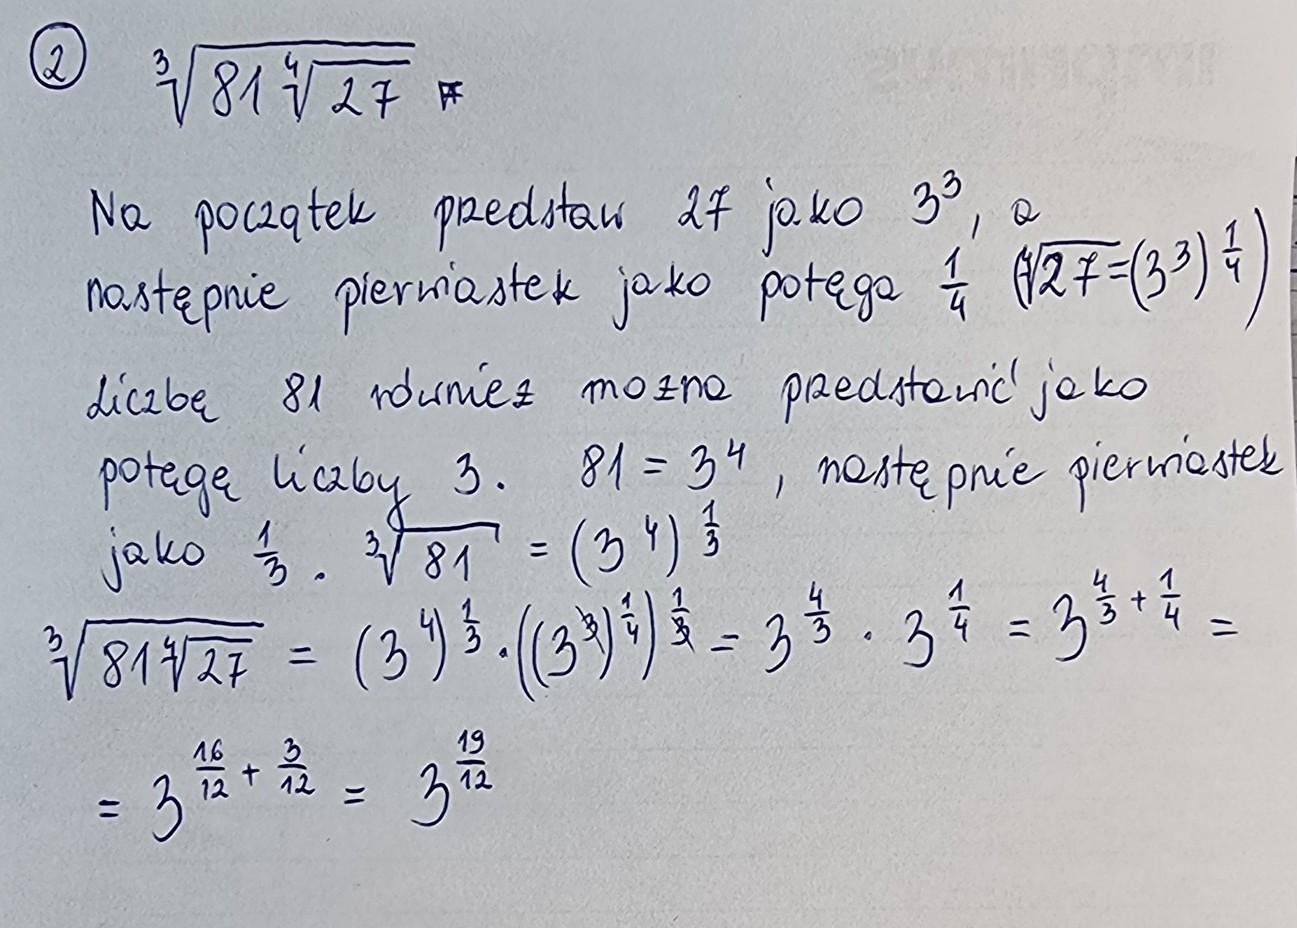 ② ∛(81 ∜27)
Na początek przedstaw 27 jako 3³, a
następnie pierwiastek jako potęga 1/4 (∜27=(3³)^(1/4))
Liczbę 81 również można przedstawić jako
potęgę liczby 3. 81 = 3⁴, następnie pierwiastek
jako 1/3. ∛81 = (3⁴)^(1/3)
∛(81∜27) = (3⁴)^(1/3) · ((3³)^(1/4))^(1/3) = 3^(4/3) · 3^(1/4) = 3^(4/3 + 1/4) =
= 3^(16/12 + 3/12) = 3^(19/12)